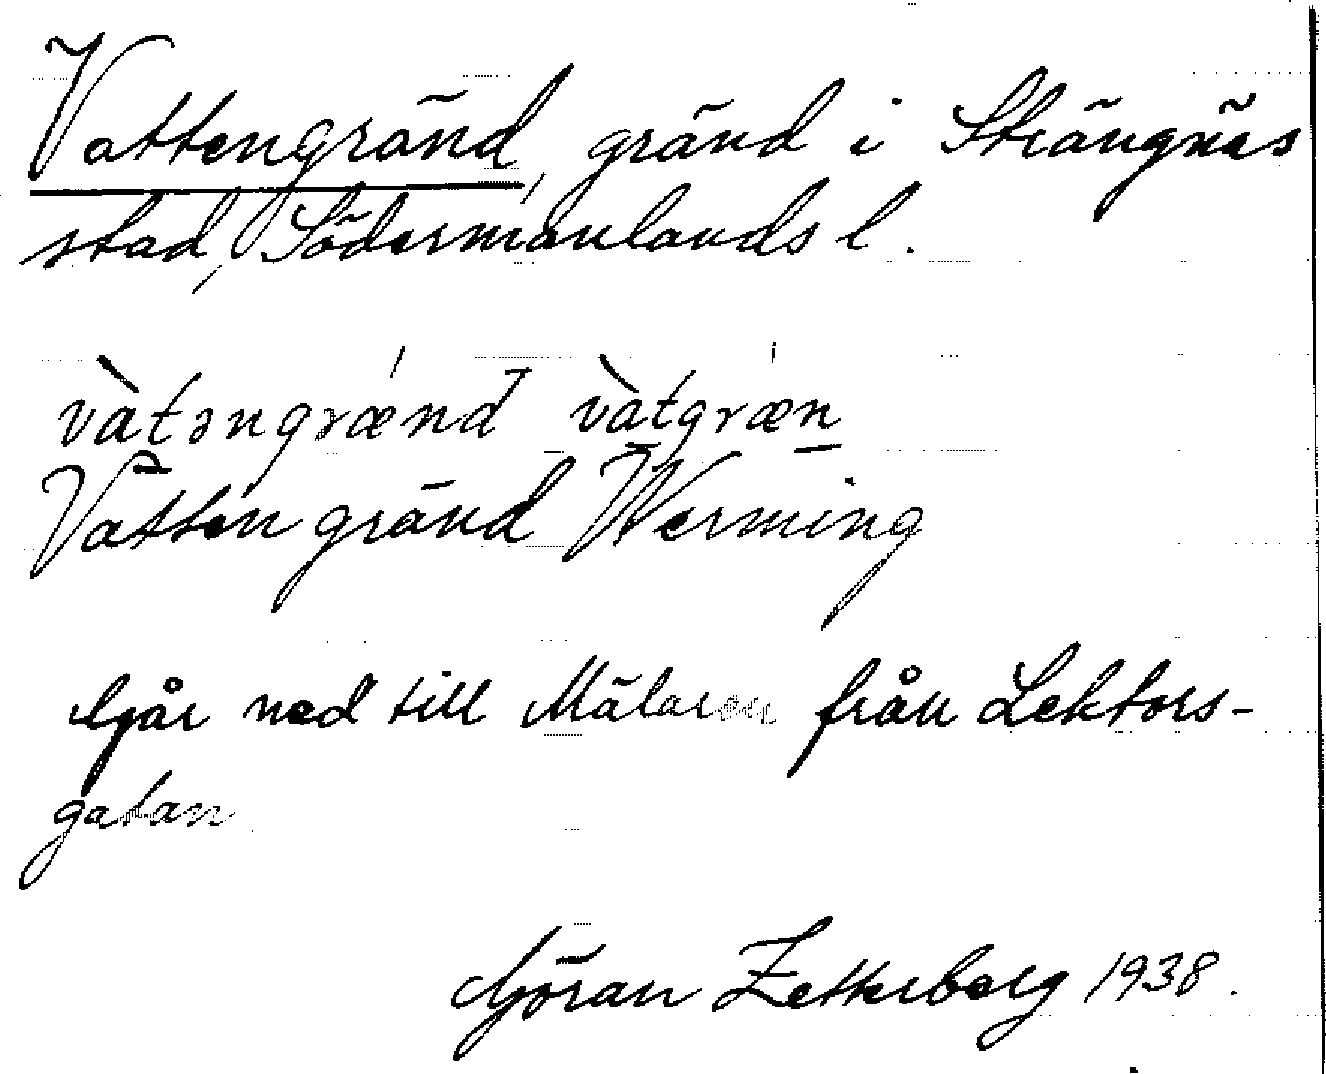 Vattengränd, gränd i Strängnäs
stad, Södermanlands l.
vàtəngrænd vàtgræn
Vattengränd Werming
Går ned till Mälaren från Lektors-
gatan
Göran Zetterberg 1938.